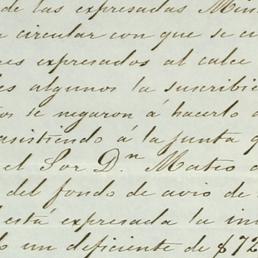 de las expresadas Min
circular con que se cu
es expresados al calce
es algunos la suscribie
os se negaron á hacerlo
asistiendo á la junta q
el Sor Dn Mateo
del fondo de avio de
está expresada la in
un deficiente de $72